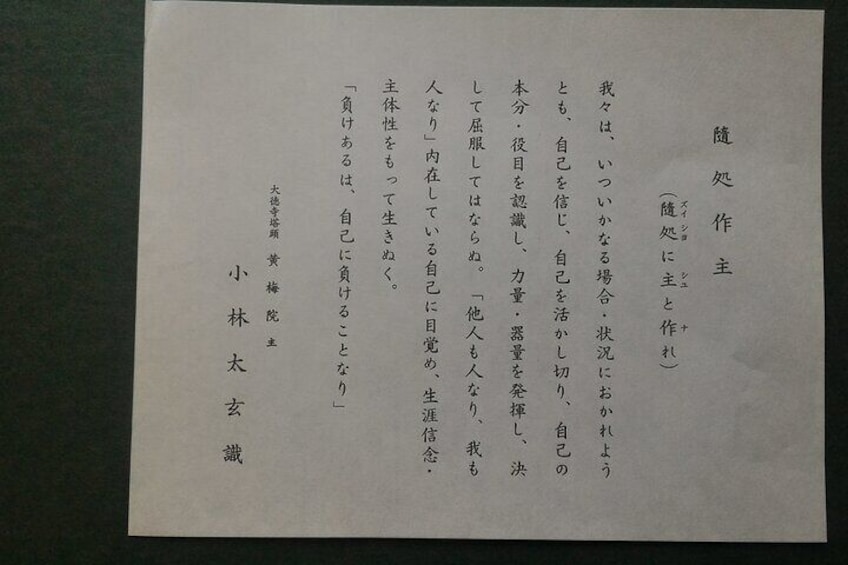 隨処作主
（隨処に主と作れ）
ズイシヨ シユ ナ
我々は、いついかなる場合・状況におかれよう
とも、自己を信じ、自己を活かし切り、自己の
本分・役目を認識し、力量・器量を発揮し、決
して屈服してはならぬ。「他人も人なり、我も
人なり」内在している自己に目覚め、生涯信念・
主体性をもって生きぬく。
「負けあるは、自己に負けることなり」
大徳寺塔頭 黄梅院主
小林太玄識